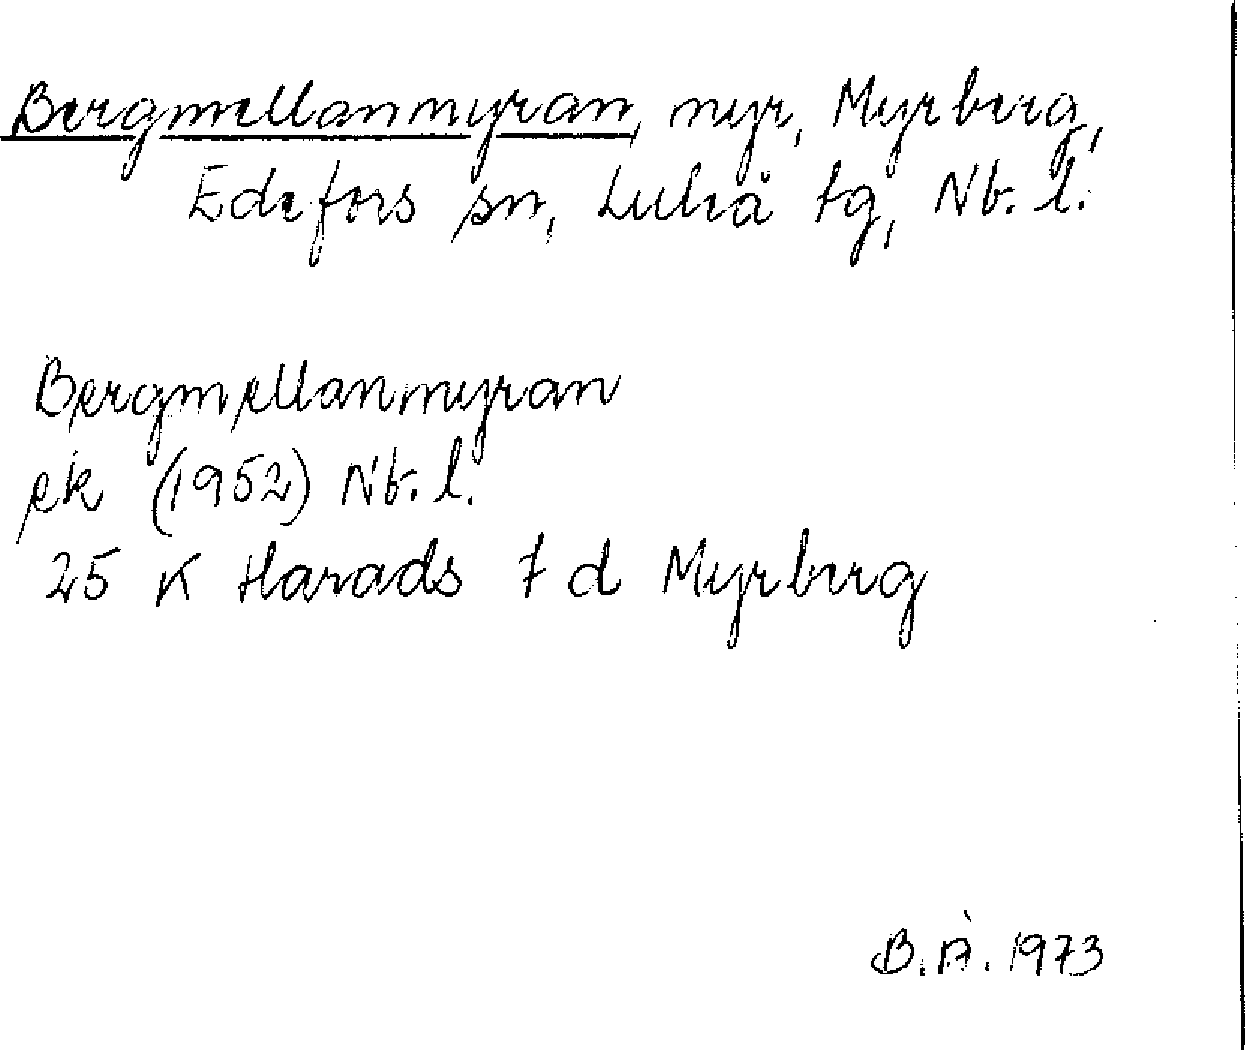 Bergmellanmyran, myr, Myrberg,
Edefors sn, Luleå tg, Nb. l.
Bergmellanmyran
ek (1952) Nb. l.
25 K Harads 7 d Myrberg
B. Å. 1973